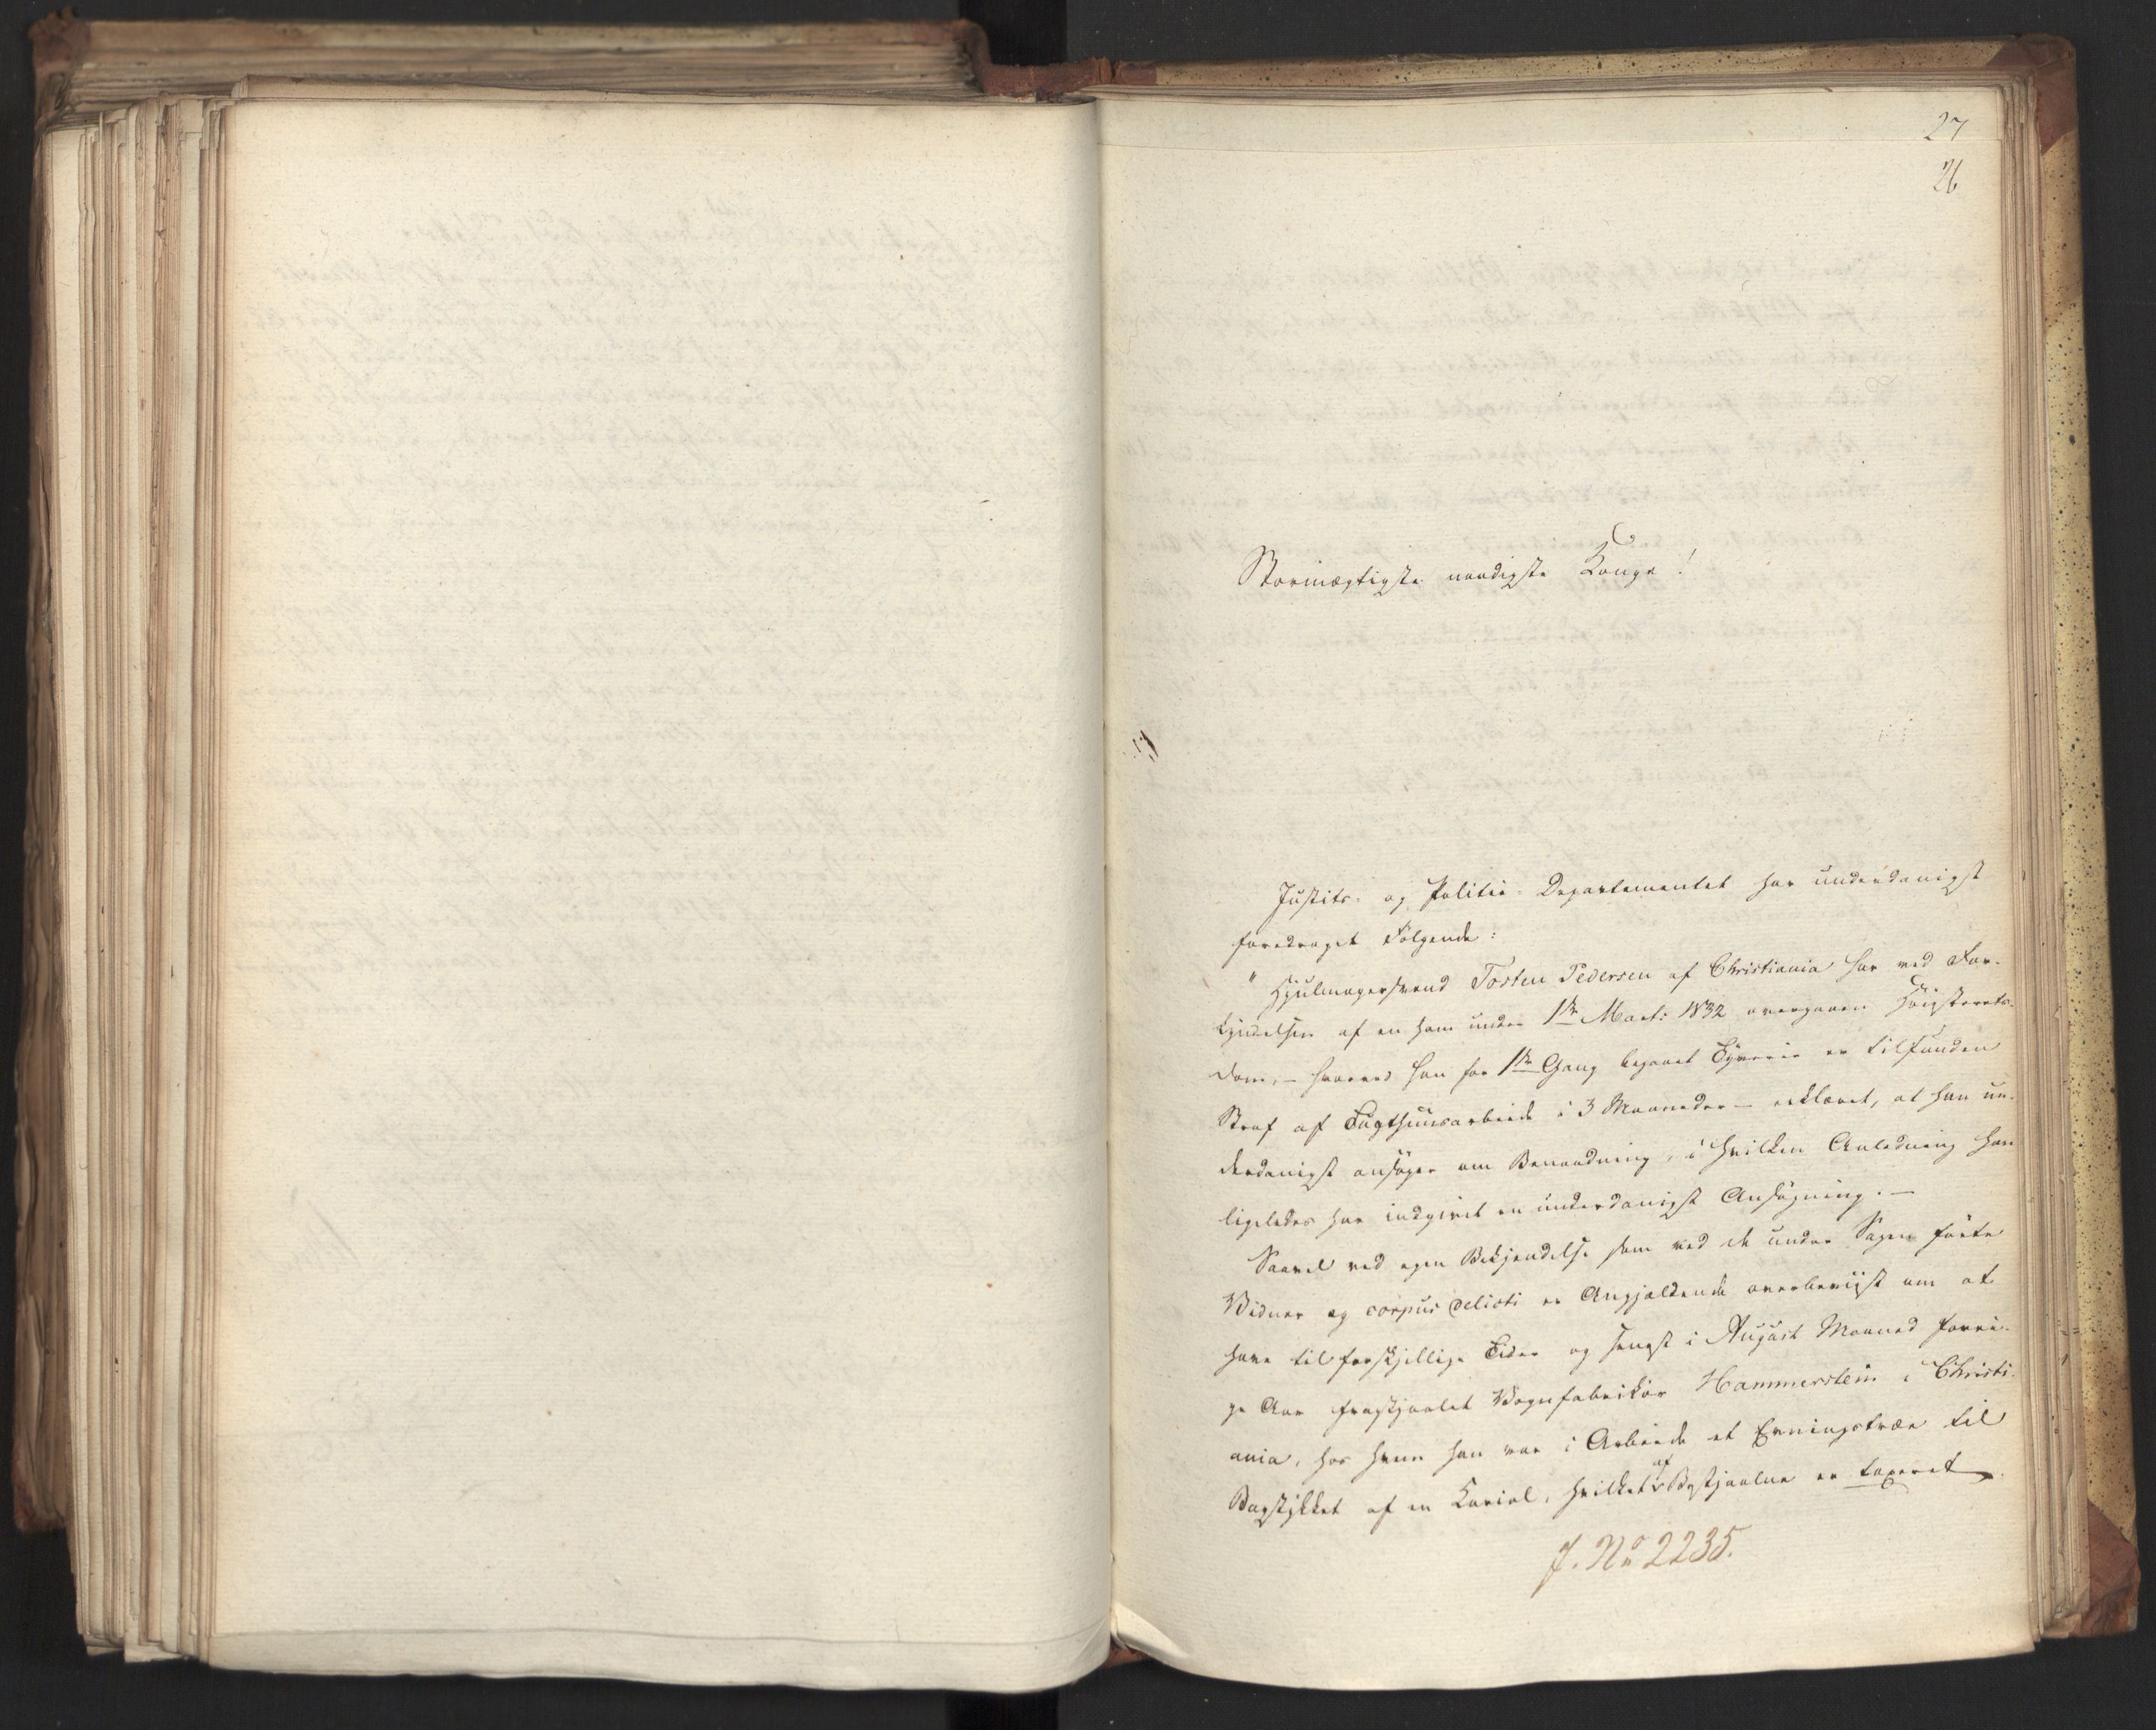 27
26
Stormægtigste naadigste Konge!
Justits- og Politie-Departementet har underdanigst
foredraget Følgende:
"Hjulmagersvend Tosten Pedersen af Christiania har ved For-
kyndelsen af en ham under 1ste Marts 1832 overgaaen Høiesterets-
dom, – hvorved han for 1ste Gang begaaet Tyverie er tilfunden
Straf af Tugthuusarbeide i 3 Maaneder – erklæret, at han un-
derdanigst ansøger om Benaadning, i hvilken Anledning han
ligeledes har indgivet en underdanigst Ansøgning. –
Saavel ved egen Bekjendelse som ved de under Sagen førte
Vidner og corpus delicti er Angjældende overbeviist om at
have til forskjellige Tider og sengst i August Maaned forri-
ge Aar frastjaalet Vognfabrikør Hammerstein i Christi-
ania, hos hvem han var i Arbeide et træe til
Bagstykket af en Kariol, hvilket af Bestjaalne er taxeret
J. No 2235.